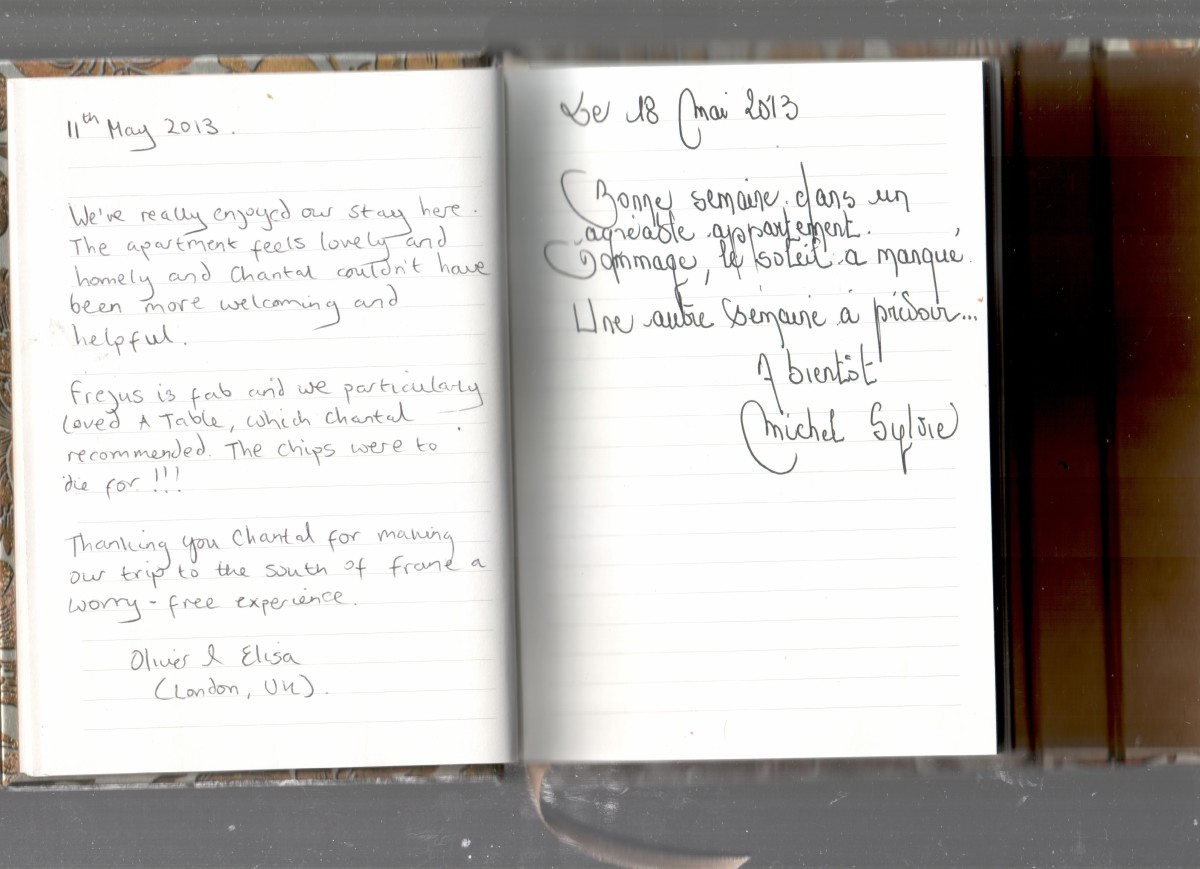 11th May 2013.
We've really enjoyed our stay here.
The apartment feels lovely and
homely and Chantal couldn't have
been more welcoming and
helpful.
Frejus is fab and we particularly
loved A Table, which Chantal
recommended. The chips were to
die for !!!
Thanking you Chantal for making
our trip to the south of france a
worry-free experience.
Olivier & Elisa
(London, UK).
Le 18 Mai 2013
Bonne semaine dans un
agréable appartement.
Dommage, le soleil a manqué.
Une autre semaine à prévoir...
A bientôt
Michel Sylvie